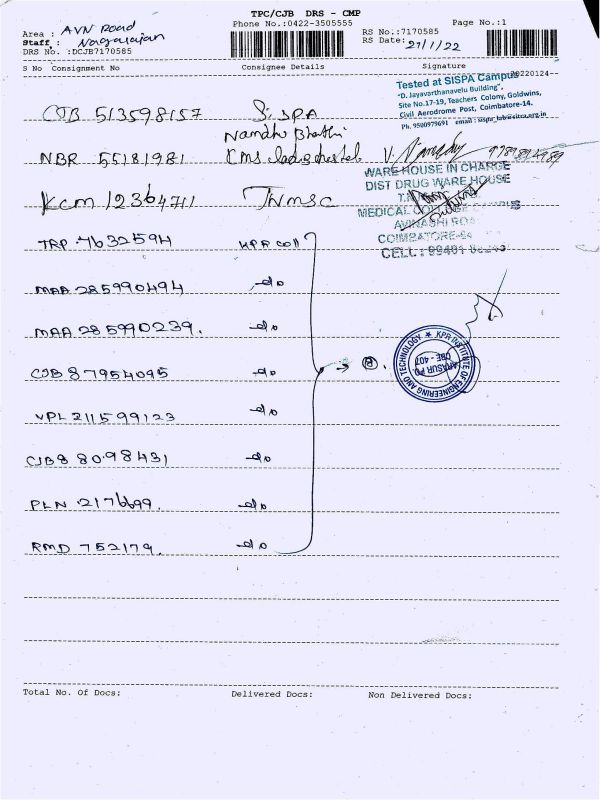 TPC/CJB DRS - CMP
Area : AVN Road
Phone No.:0422-3505555
RS No.:7170585
Page No.:1
Staff : Nagarajan
RS Date: 27/1/22
DRS No. :DCJB7170585
S No Consignment No
Consignee Details
Signature
20220124--
Tested at SISPA Campus
"D. Jayavarthanavelu Building",
Site No.17-19, Teachers Colony, Goldwins,
Civil Aerodrome Post, Coimbatore-14.
Ph. 9500979691
CJB 513598157 SISPA
Nandhu Bhathi
NBR 55181981 CMS ladies hostel
WARE HOUSE IN CHARGE
DIST DRUG WARE HOUSE
KCM 12364711 TNMSC
MEDICAL COLLEGE CAMPUS
AVINASHI ROAD
COIMBATORE-
CELL :
TRP 7632594 KPR coll
MAA 285990494 do
MAA 285990239. do
KPR INSTITUTE OF ENGINEERING AND TECHNOLOGY
ARASUR PO
CBE - 407
CJB 87954095 do
VPL 211599123 do
CJB 88098431 do
PLN 2176699. do
RMD 752179. do
8.
Total No. Of Docs:
Delivered Docs:
Non Delivered Docs: